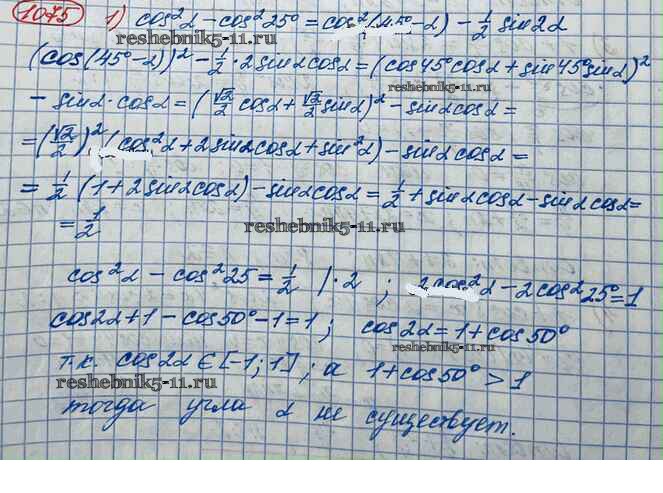 1075 1) cos²α - cos²25° = cos²(45° - α) - 1/2 sin2α
(cos(45°-α))² - 1/2 · 2sinαcosα = (cos45°cosα + sin45°sinα)²
reshebnik5-11.ru
- sinα · cosα = (√2/2 cosα + √2/2 sinα)² - sinαcosα =
= (√2/2)² (cos²α + 2sinαcosα + sin²α) - sinαcosα =
= 1/2 (1 + 2sinαcosα) - sinαcosα = 1/2 + sinαcosα - sinαcosα =
= 1/2
reshebnik5-11.ru reshebnik5-11.ru
cos²α - cos²25 = 1/2 | · 2 ; 2cos²α - 2cos²25° = 1
cos2α + 1 - cos50° - 1 = 1 ; cos2α = 1 + cos50°
reshebnik5-11.ru
т.к. cos2α ∈ [-1; 1] ; а 1 + cos50° > 1
reshebnik5-11.ru
тогда угла α не существует.